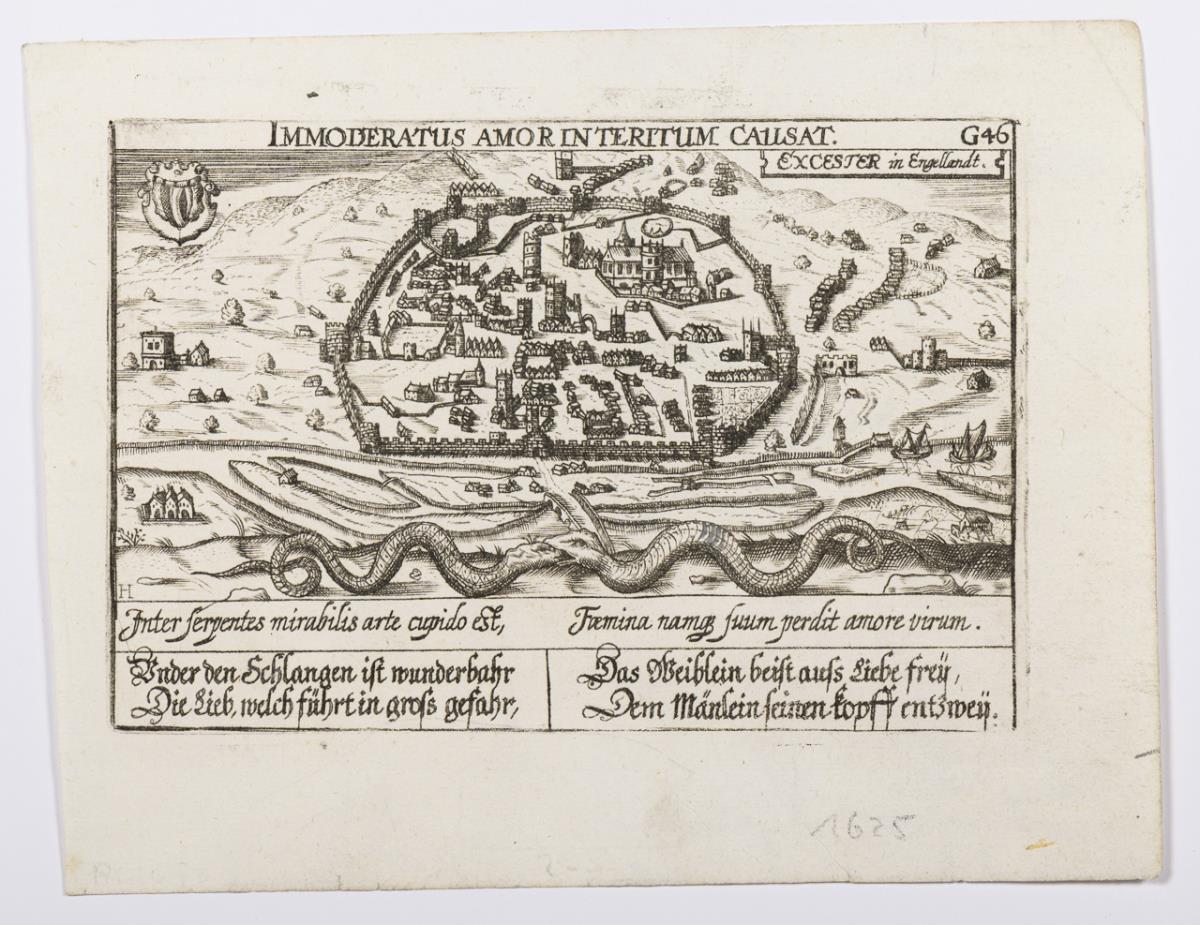 IMMODERATUS AMOR INTERITUM CAUSAT.
G46
EXCESTER in Engellandt.
H
Inter serpentes mirabilis arte cupido est,
Fœmina namqꝫ suum perdit amore virum.
Vnder den Schlangen ist wunderbahr
Die Lieb, welch führt in gross gefahr,
Das Weiblein beist auss Liebe frey,
Dem Mänlein seinen kopff entzweÿ.
1625